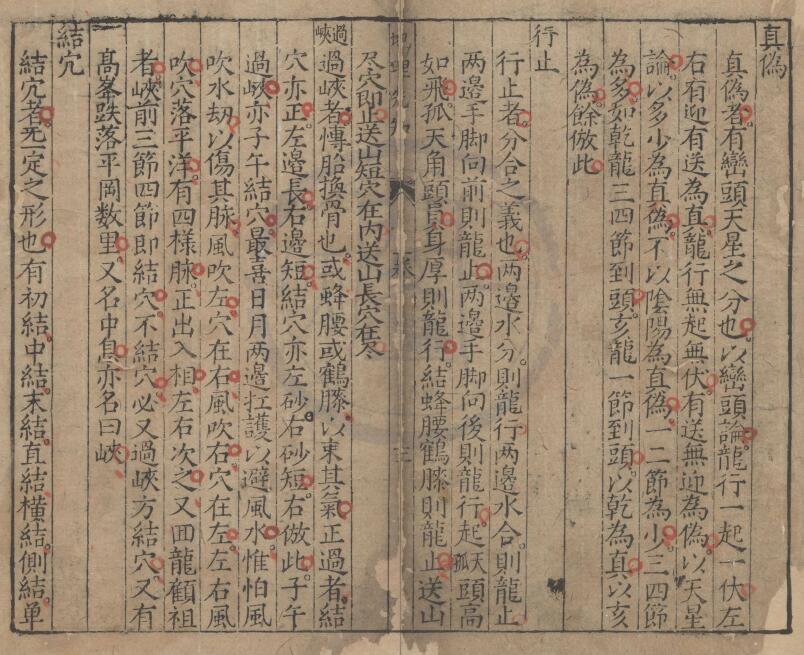 真偽
真偽者有巒頭天星之分也以巒頭論龍行一起一伏左
右有迎有送為真龍行無起無伏有送無迎為偽以天星
論以多少為真偽不以陰陽為真偽一二節為少三四節
為多如乾龍三四節到頭亥龍一節到頭以乾為真以亥
為偽餘倣此
行止
行止者分合之義也两邊水分則龍行两邊水合則龍止
两邊手脚向前則龍止两邊手脚向後則龍行起天孤頭高
如飛孤天角頭身厚則龍行結蜂腰鶴膝則龍止送山
尽穴即止送山短穴在内送山長穴在尽
過峽
過峽者傳胎換骨也或蜂腰或鶴膝以束其氣正過者結
穴亦正左邊長右邊短結穴亦左砂右砂短右倣此子午
過峽亦子午結穴最喜日月两邊扛護以避風水惟怕風
吹水刼以傷其脉風吹左穴在右風吹右穴在左左右風
吹穴落平洋有四樣脉正出入相左右次之又回龍顧祖
者峽前三節四節即結穴不結穴必又過峽方結穴又有
高峯跌落平岡数里又名中息亦名曰峽
結穴
結穴者无一定之形也有初結中結末結直結橫結側結单